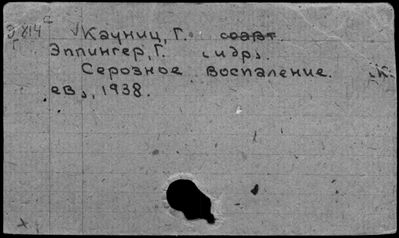 Э 814 √Кауниц, Г. соавт.
Эппингер, Г. и др.
Серозное воспаление. К.
ев, 1938.